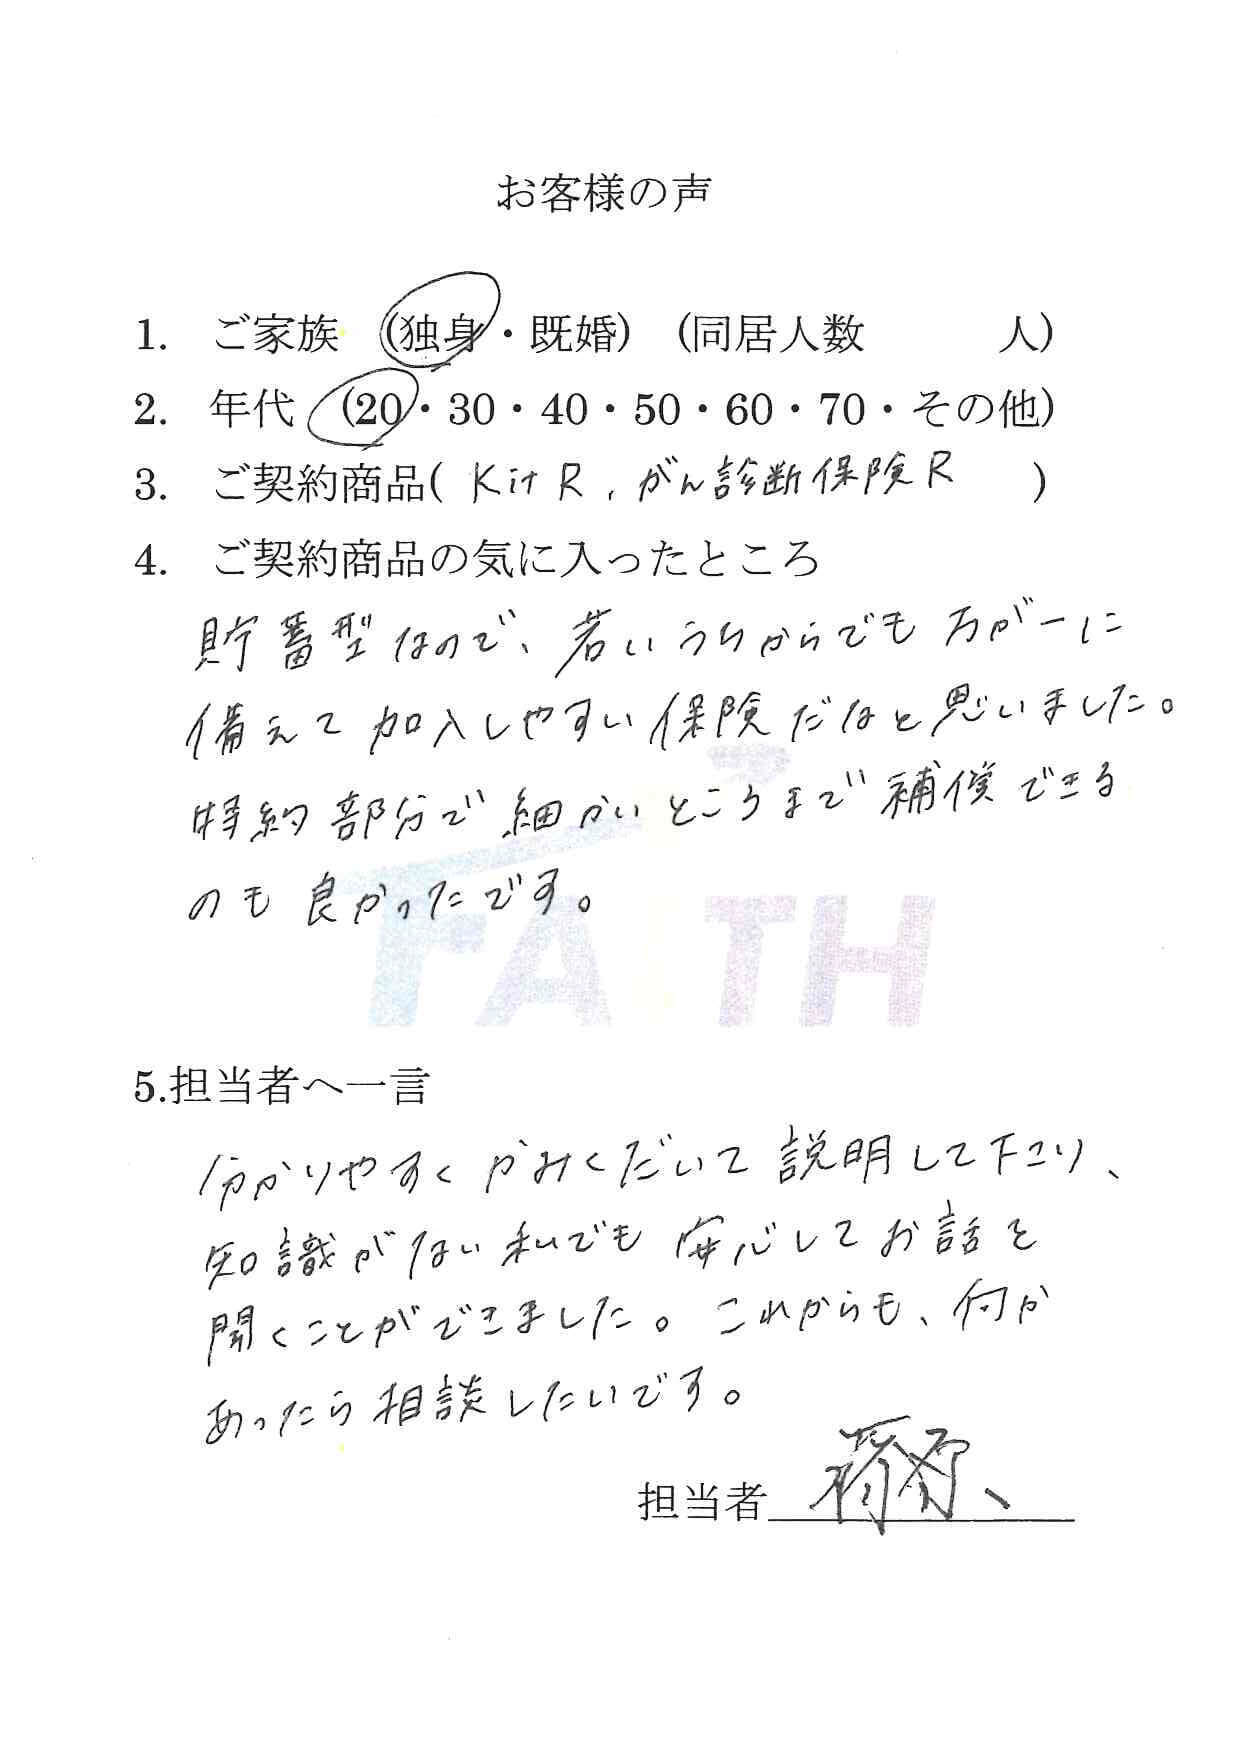 お客様の声
1. ご家族 (独身・既婚) (同居人数 人)
2. 年代 (20・30・40・50・60・70・その他)
3. ご契約商品( Kit R , がん診断保険R )
4. ご契約商品の気に入ったところ
貯蓄型なので、若いうちからでも万が一に
備えて加入しやすい保険だなと思いました。
特約部分で細かいところまで補償できる
のも良かったです。
FAITH
5.担当者へ一言
分かりやすくかみくだいて説明して下さり、
知識がない私でも安心してお話を
聞くことができました。これからも、何か
あったら相談したいです。
担当者